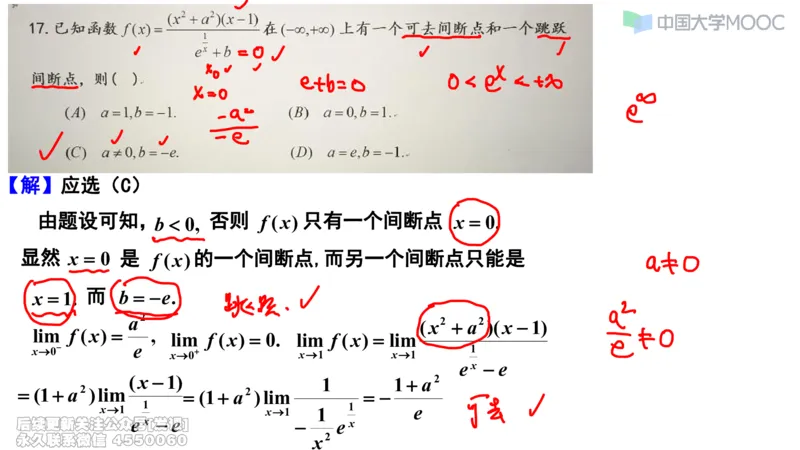 中国大学MOOC
17. 已知函数 f(x) = (x² + a²)(x − 1) / (e^{1/x} + b) 在 (−∞, +∞) 上有一个可去间断点和一个跳跃
= 0
x₀
间断点，则( )．
x=0
e+b=0
0 < e^x < +∞
e^∞
−a² / −e
(A) a = 1, b = −1.
(B) a = 0, b = 1.
(C) a ≠ 0, b = −e.
(D) a = e, b = −1.
【解】应选（C）
由题设可知，b < 0, 否则 f(x) 只有一个间断点 x = 0.
显然 x = 0 是 f(x) 的一个间断点,而另一个间断点只能是
a≠0
x = 1, 而 b = −e.
跳跃.
lim_{x→0⁻} f(x) = a²/e, lim_{x→0⁺} f(x) = 0. lim_{x→1} f(x) = lim_{x→1} (x² + a²)(x − 1) / (e^{1/x} − e)
a²/e ≠0
= (1 + a²) lim_{x→1} (x − 1) / (e^{1/x} − e) = (1 + a²) lim_{x→1} 1 / (−(1/x²) e^{1/x}) = − (1 + a²)/e
可去
永久联系微信 4550060